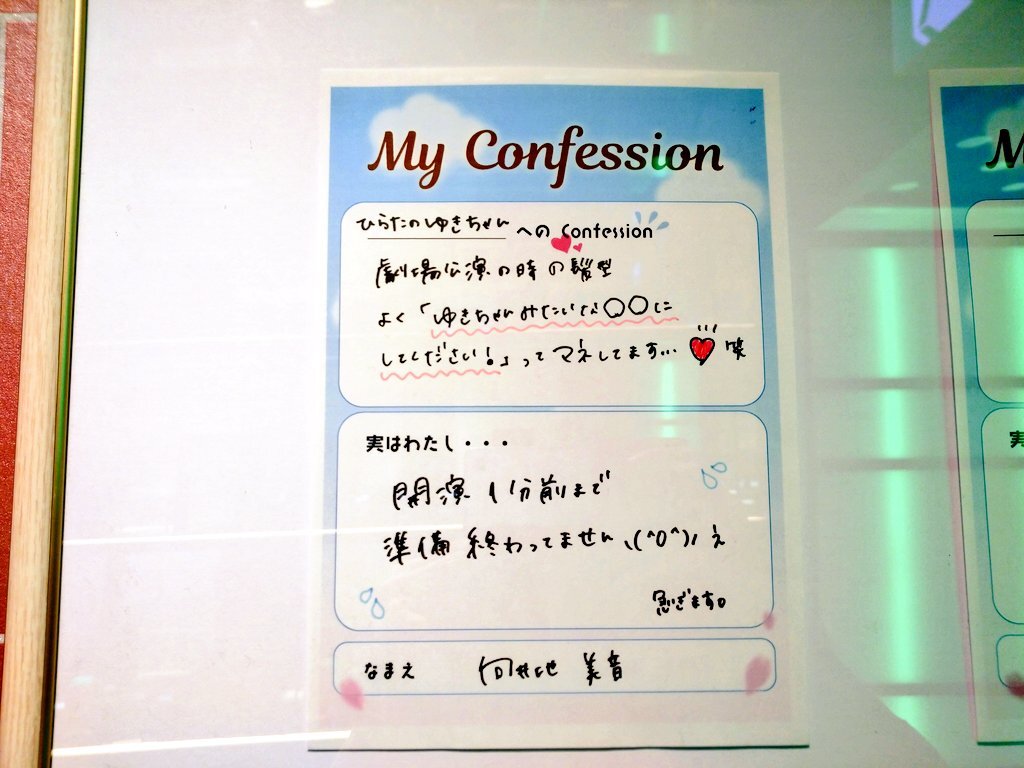 My Confession
ひらたのゆきちゃん への Confession
劇場公演の時の髪型
よく「ゆきちゃんみたいな〇〇に
してください!」ってマネしてます… 笑
実はわたし・・・
開演11分前まで
準備終わってません、(^o^)ノ え
急ぎます。
なまえ 向井地 美音
M
実